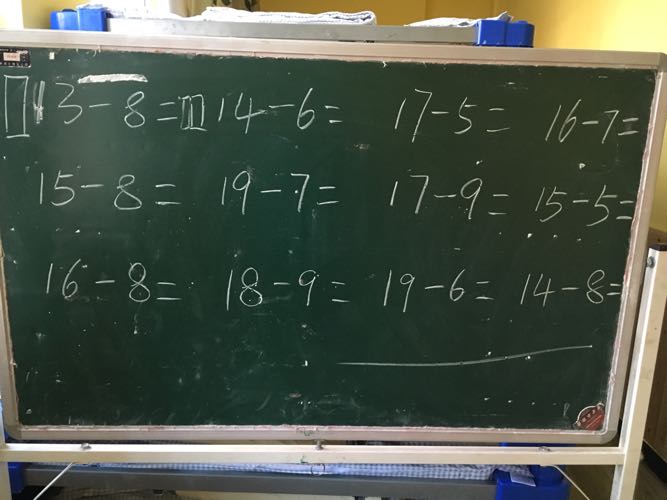 13-8= 14-6= 17-5= 16-7=
15-8= 19-7= 17-9= 15-5=
16-8= 18-9= 19-6= 14-8=